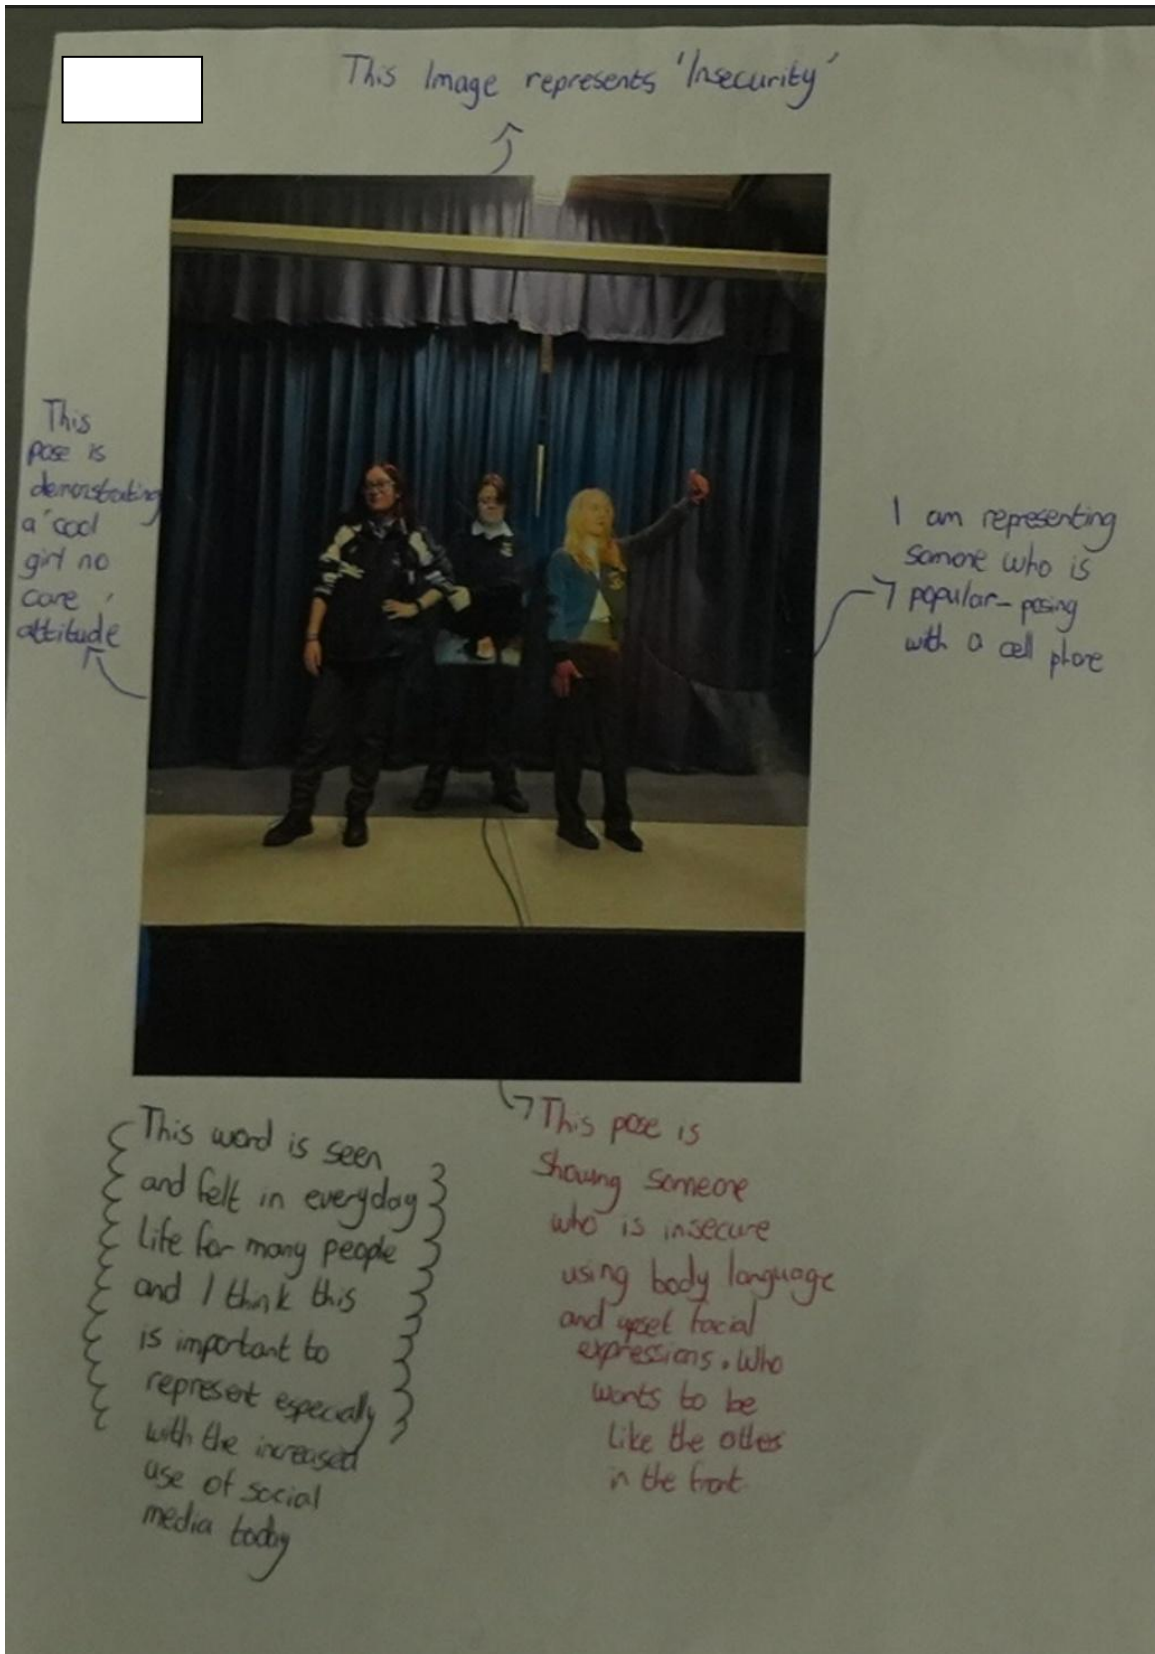 This Image represents 'Insecurity'
This
pose is
demonstrating
a 'cool
girl no
care'
attitude
I am representing
somone who is
popular-posing
with a cell phone
This word is seen
and felt in everyday
life for many people
and I think this
is important to
represent especially
with the increased
use of social
media today
This pose is
showing someone
who is insecure
using body language
and upset facial
expressions. Who
wants to be
like the others
in the front.